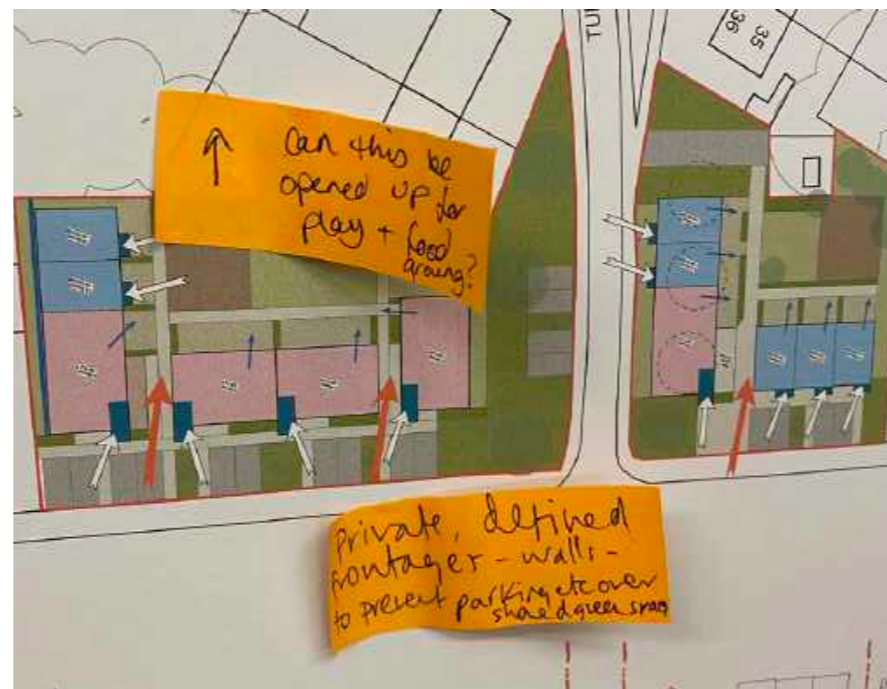 TUI
36
35
↑ Can this be
opened up for
play + food
growing?
Private, defined
frontages - walls -
to prevent parking etc over
shared green space